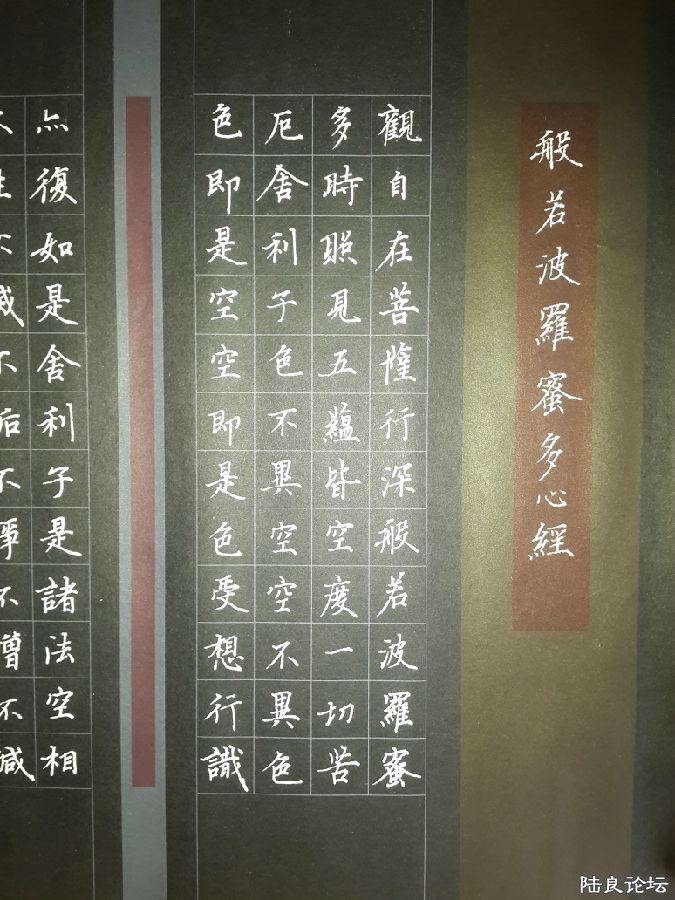 般若波羅蜜多心經
觀自在菩薩行深般若波羅蜜
多時照見五蘊皆空度一切苦
厄舍利子色不異空空不異色
色即是空空即是色受想行識
亦復如是舍利子是諸法空相
陆良论坛